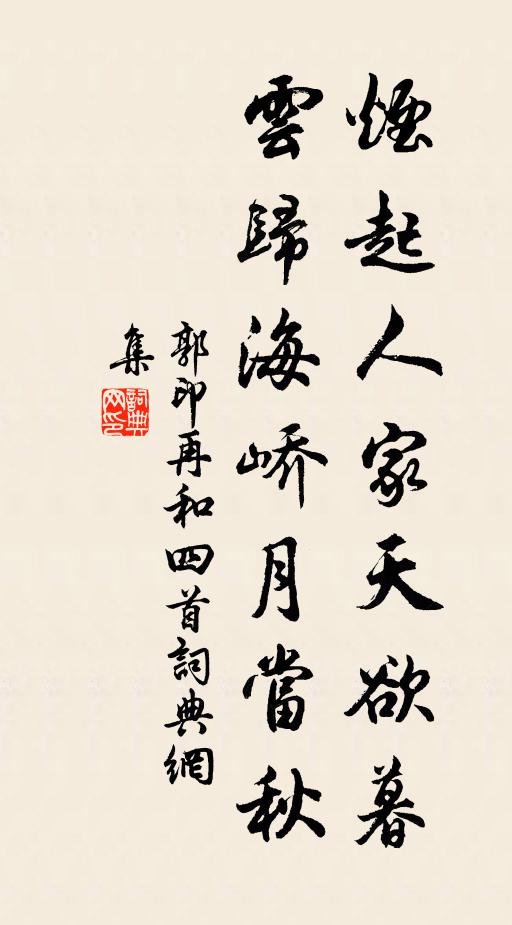 煙起人家天欲暮
雲歸海嶠月當秋
郭印再和四首詞典網
集
詞典網印